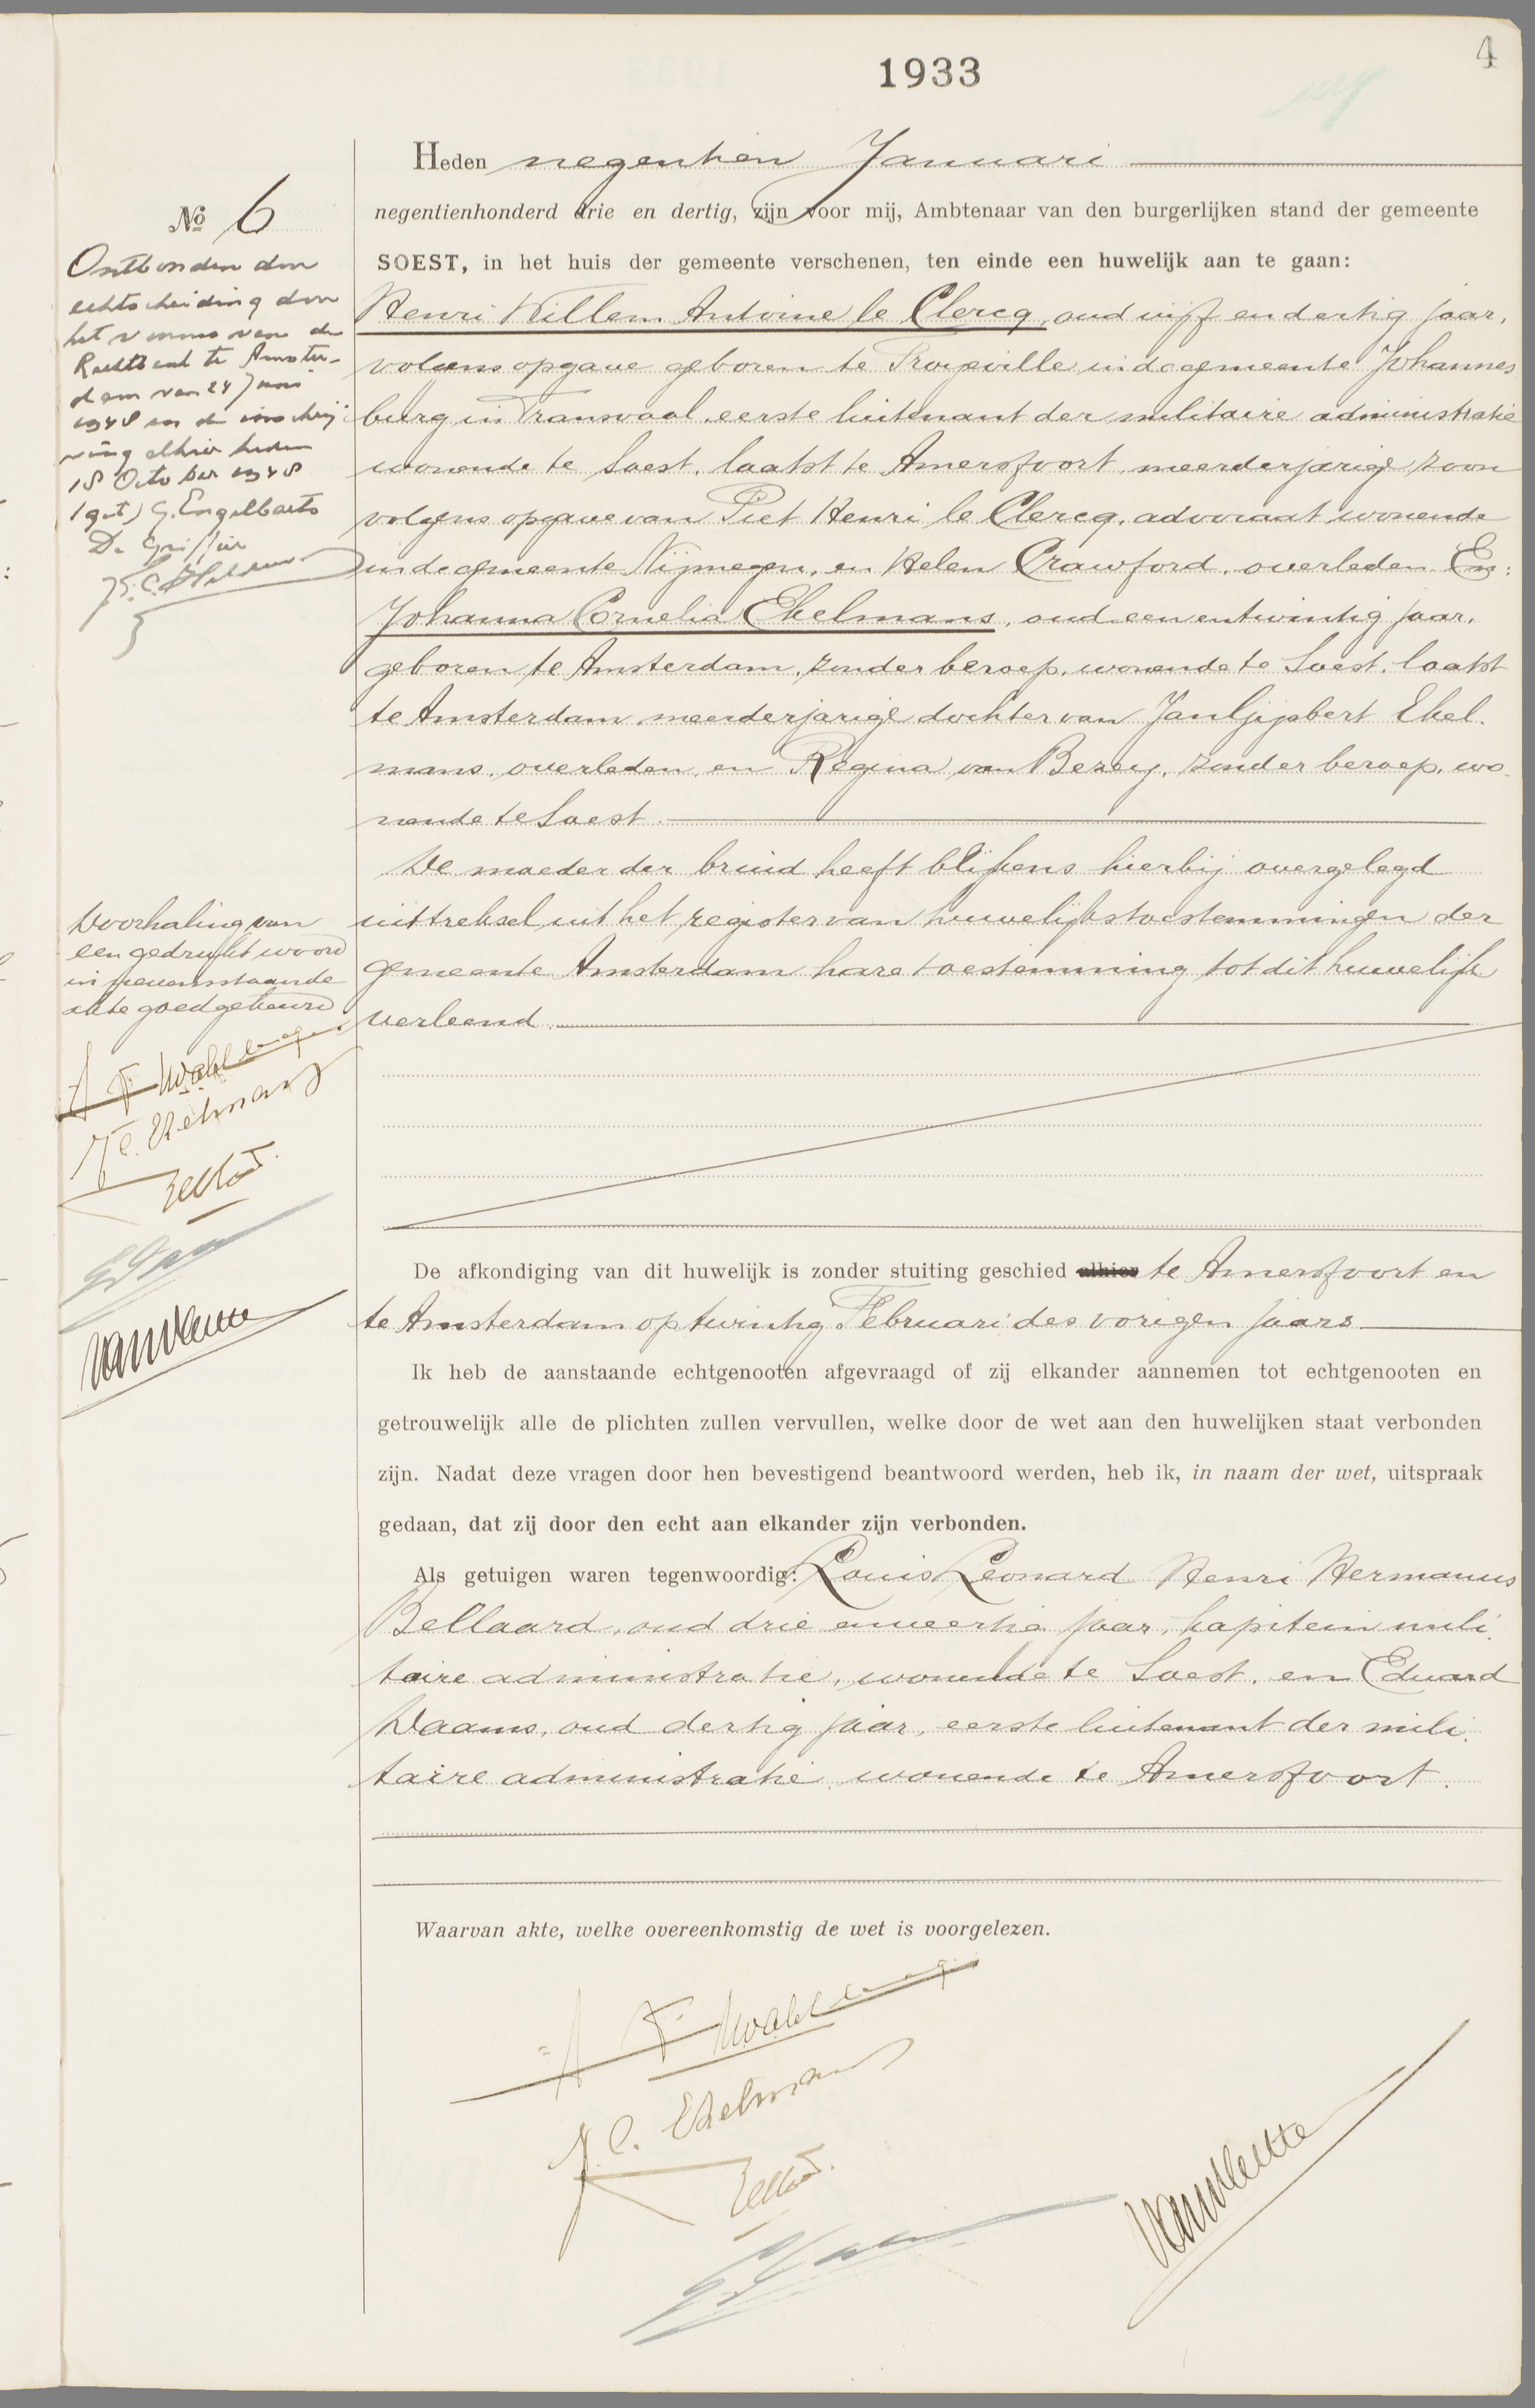 4
1933
Heden negentien Januari
negentienhonderd drie en dertig, zijn voor mij, Ambtenaar van den burgerlijken stand der gemeente
SOEST, in het huis der gemeente verschenen, ten einde een huwelijk aan te gaan:
Henri Willem Antoine le Clercq, oud vijf en dertig jaar,
volgens opgave geboren te Troyeville in de gemeente Johannes
burg in Transvaal, eerste luitenant der militaire administratie
wonende te Soest, laatst te Amersfoort, meerderjarige zoon
volgens opgave van Piet Henri le Clercq, advocaat, wonende
in de gemeente Nijmegen, en Helen Crawford, overleden. En:
Johanna Cornelia Ekelmans, oud een en twintig jaar,
geboren te Amsterdam, zonder beroep, wonende te Soest, laatst
te Amsterdam, meerderjarige dochter van Jan Gijsbert Ekel-
mans, overleden, en Regina van Bezey, zonder beroep, wo-
nende te Soest.
De moeder der bruid heeft blijkens hierbij overgelegd
uittreksel uit het register van huwelijkstoestemmingen der
gemeente Amsterdam hare toestemming tot dit huwelijk
verleend.
De afkondiging van dit huwelijk is zonder stuiting geschied alhier te Amersfoort en
te Amsterdam op twintig Februari des vorigen jaars
Ik heb de aanstaande echtgenooten afgevraagd of zij elkander aannemen tot echtgenooten en
getrouwelijk alle de plichten zullen vervullen, welke door de wet aan den huwelijken staat verbonden
zijn. Nadat deze vragen door hen bevestigend beantwoord werden, heb ik, in naam der wet, uitspraak
gedaan, dat zij door den echt aan elkander zijn verbonden.
Als getuigen waren tegenwoordig: Louis Leonard Henri Hermanus
Bellaard, oud drie en veertig jaar, kapitein mili-
taire administratie, wonende te Soest, en Eduard
Daams, oud dertig jaar, eerste luitenant der mili-
taire administratie, wonende te Amersfoort.
Waarvan akte, welke overeenkomstig de wet is voorgelezen.
J.C. Ekelmans
No 6
Ontbonden door
echtscheiding door
het vonnis van de
Rechtbank te Amster-
dam van 24 Juni
1948 en de inschrij-
ving alhier heden
18 October 1948
(get) G. Engelbarts
De Griffier
Doorhaling van
een gedrukt woord
in nevenstaande
akte goedgekeurd
J.C. Ekelmans